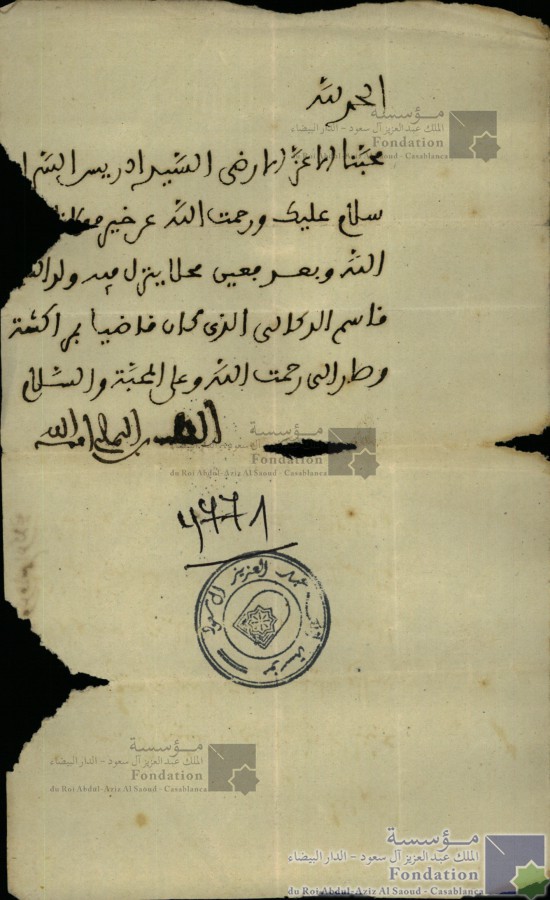 الحمد لله
محبنا الاعز الارضى السيد ادريس
سلام عليك ورحمت الله عن خير
الله وبعد فعين محلا ينزل فيه ولد
قاسم الدكالي الذي كان قاضيا بمراكشة
وصار الى رحمت الله وعلى المحبة والسلام
الله
مؤسسة عبد العزيز آل سعود
مؤسسة
الملك عبد العزيز آل سعود - الدار البيضاء
Fondation
du Roi Abdul-Aziz Al Saoud - Casablanca
مؤسسة
الملك عبد العزيز آل سعود - الدار البيضاء
Fondation
du Roi Abdul-Aziz Al Saoud - Casablanca
مؤسسة
الملك عبد العزيز آل سعود - الدار البيضاء
Fondation
du Roi Abdul-Aziz Al Saoud - Casablanca
مؤسسة
الملك عبد العزيز آل سعود - الدار البيضاء
Fondation
du Roi Abdul-Aziz Al Saoud - Casablanca